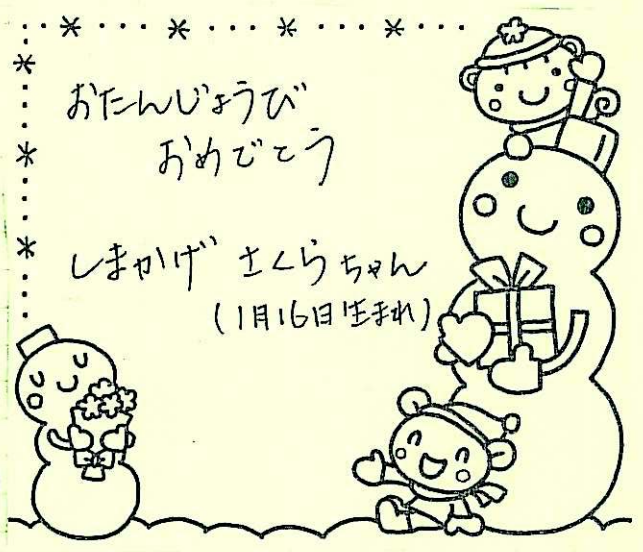 おたんじょうび
おめでとう
しまかげ さくらちゃん
(1月16日生まれ)